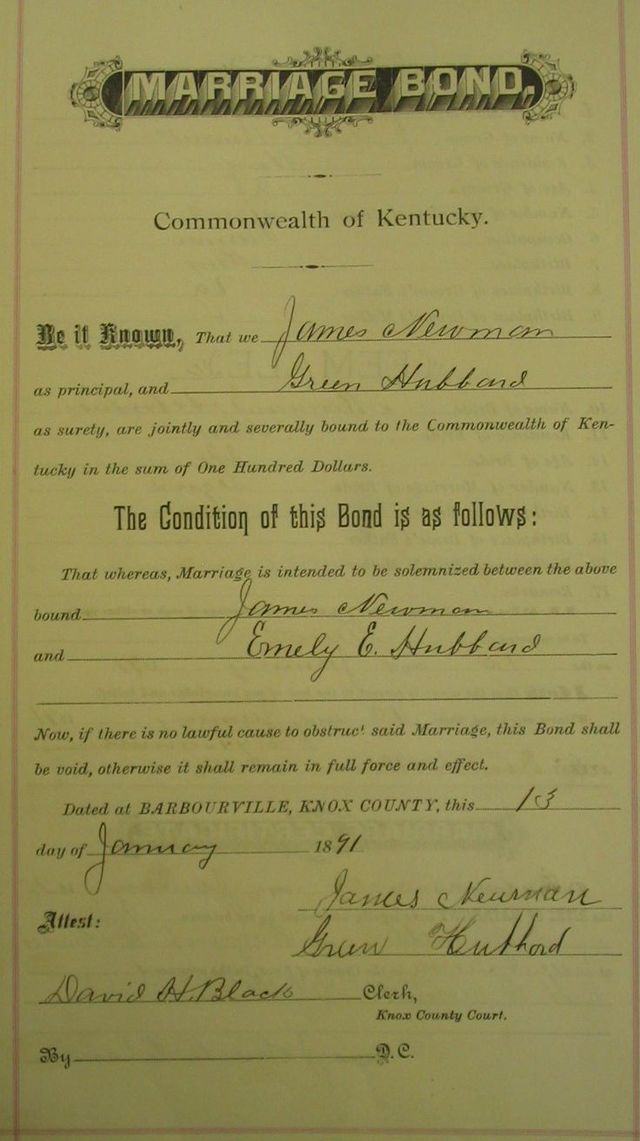 MARRIAGE BOND.
Commonwealth of Kentucky.
Be it Known, That we James Newman
as principal, and Green Hubbard
as surety, are jointly and severally bound to the Commonwealth of Ken-
tucky in the sum of One Hundred Dollars.
The Condition of this Bond is as follows:
That whereas, Marriage is intended to be solemnized between the above
bound James Newman
and Emely E. Hubbard
Now, if there is no lawful cause to obstruct said Marriage, this Bond shall
be void, otherwise it shall remain in full force and effect.
Dated at BARBOURVILLE, KNOX COUNTY, this 13
day of January 1891
James Newman
Attest:
Green Hubbord
David H. Black Clerk,
Knox County Court.
By D.C.